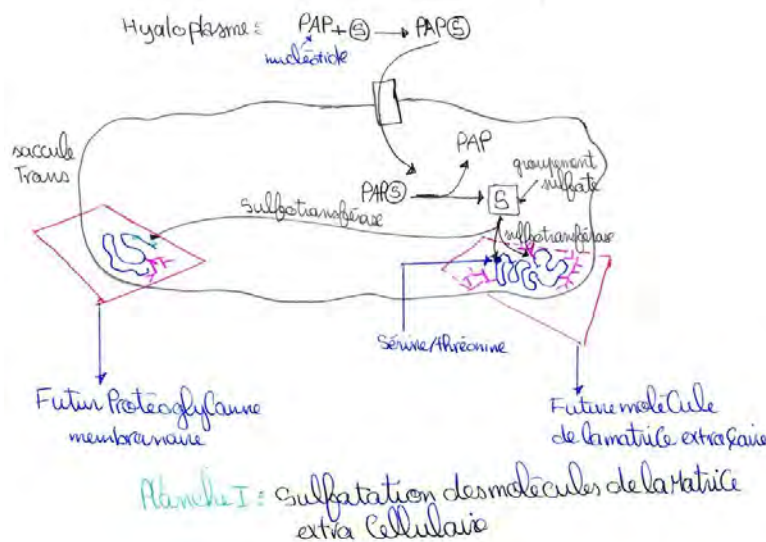 Hyaloplasme : PAP + S → PAP S
nucléotide
saccule
Trans
PAP
groupement
sulfate
PAP S
S
Sulfotransférase
sulfotransférase
Sérine/thréonine
Futur Protéoglycanne
membranaire
Future molécule
de la matrice extra
Planche I : Sulfatation des molécules de la Matrice
extra Cellulaire